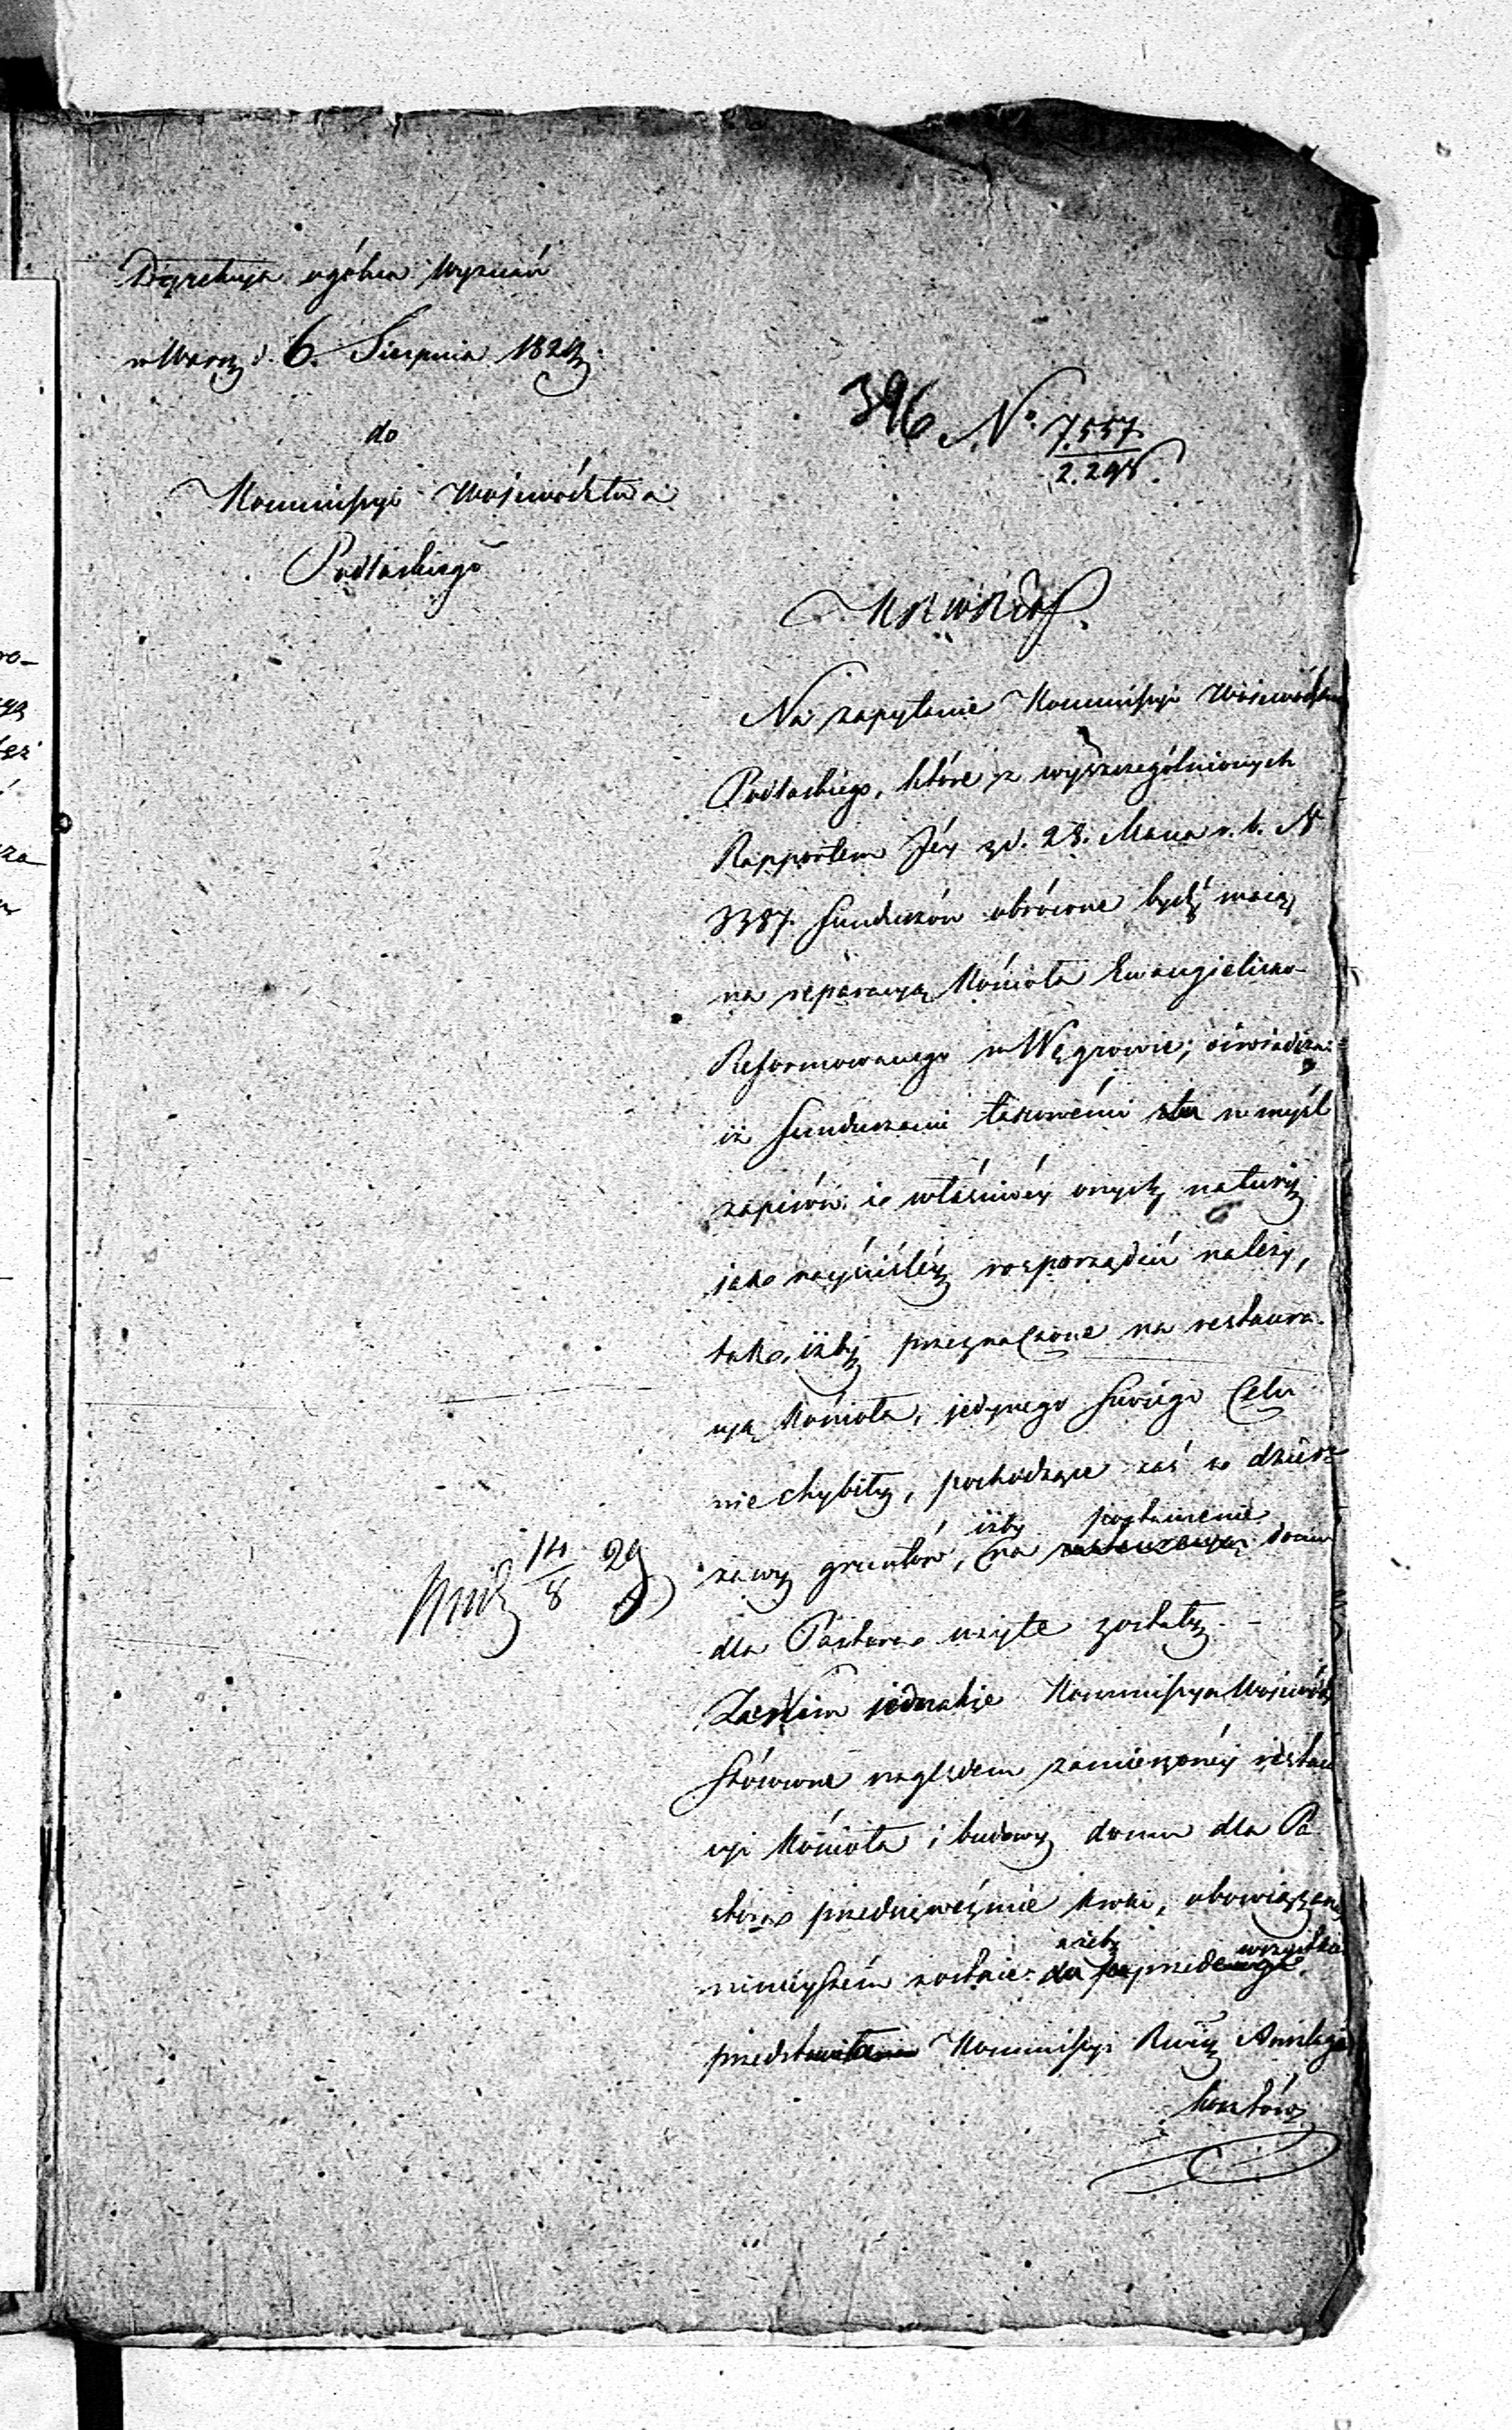 Dyrekcya ogólna Wyznań
w Warsz. d. 6. Sierpnia 1829.
do
Kommissyi Województwa
Podlaskiego
396 No. 7.557.
2.298.
KRWRiOP.
Na zapytanie Kommissyi Województwa
Podlaskiego, które z wyszczególnionych
Rapportem Jéy z d. 28. Maca r. b. N
3387. funduszów obrócone bydź maią
na reparacyą Kościoła Ewangielicko-
Reformowanego w Węgrowie; oświadcza
iż funduszami takowémi w myśl
zapisów i właściwéy onych natury
jak nayściśléy rosporządzić należy,
tak, iżby przeznaczone na restaura-
cyą Kościoła, jedynego swoiego Celu
nie chybiły, pochodzące zaś z dzier-
żawy gruntów, iżby na postawienie domu
dla Pastora użyte zostały. -
Zanim jednakże Kommissya Wojewódz
stósowne względem zamierzonéy restau
cyi Kościoła i budowy domu dla Pa
stora przedsięweźmie kroki, obowiązaną
ninieyszém zostaie ażeby przede wszystkiem
przedstawiła Kommissyi Rząd. Anszlagi
kosztów
14/8 29